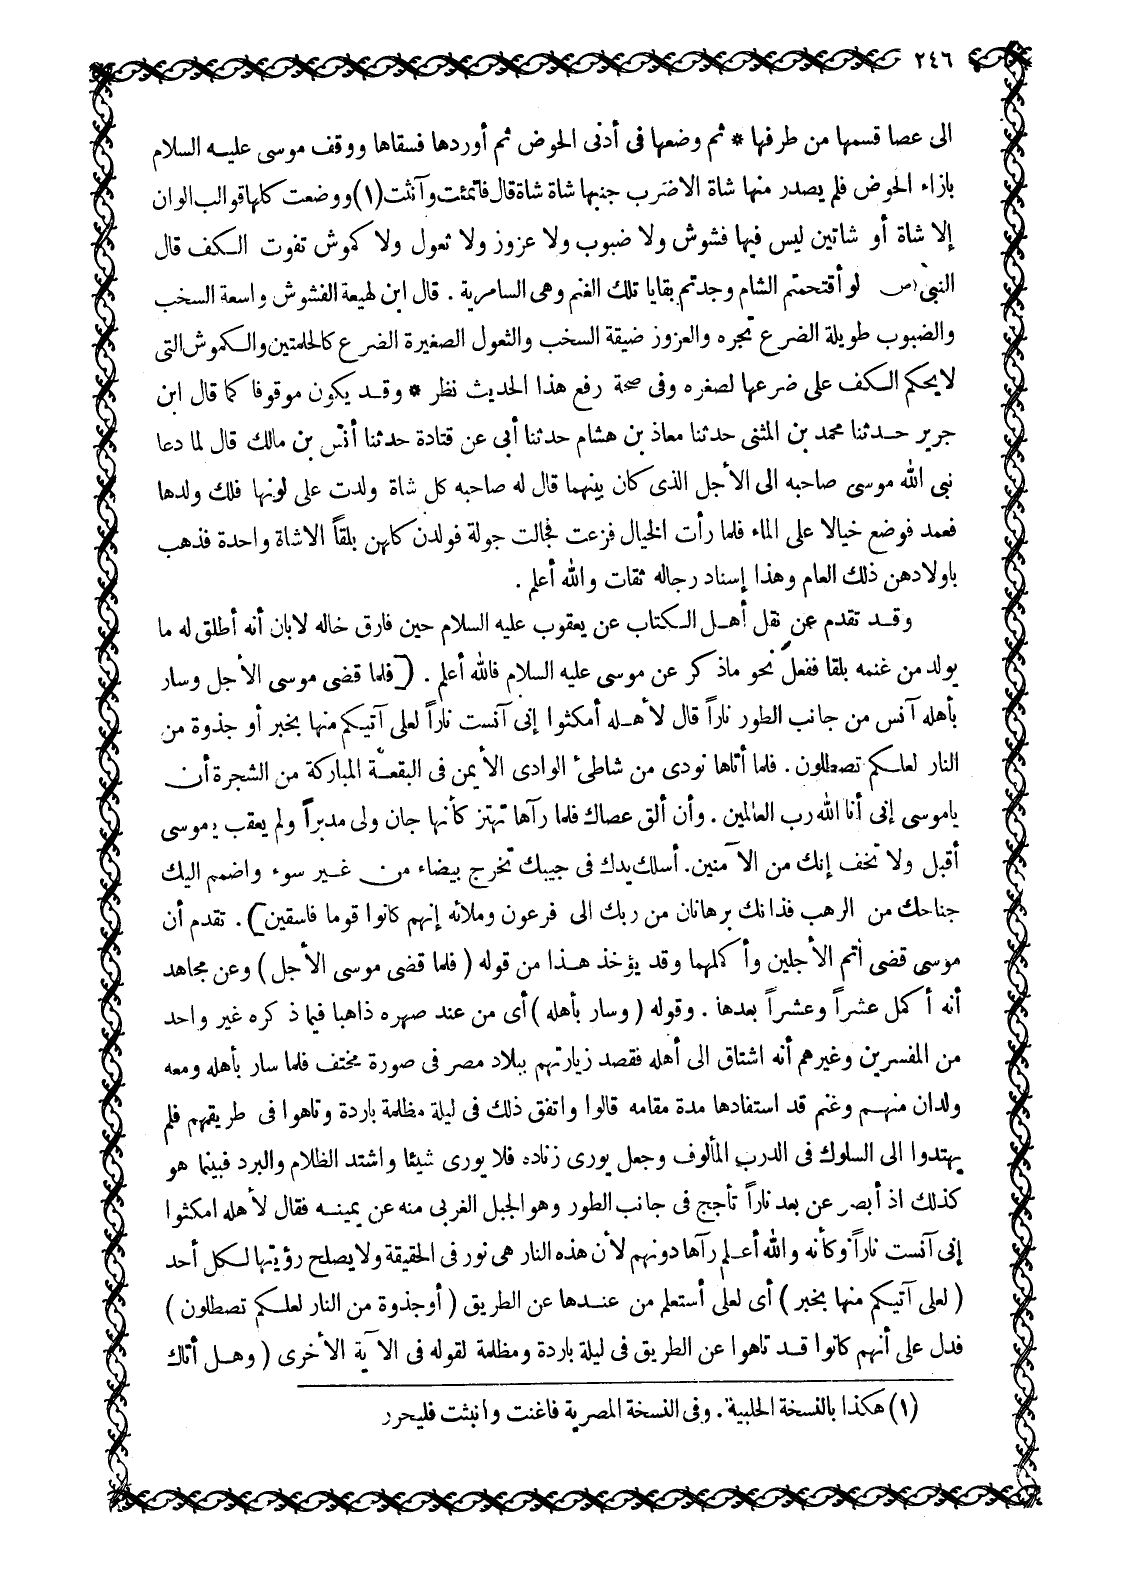 ٢٤٦
الى عصا قسمها من طرفها * ثم وضعها فى أدنى الحوض ثم أوردها فسقاها ووقف موسى عليه السلام
بازاء الحوض فلم يصدر منها شاة الا ضرب جنبها شاة شاة قال فاتمئت وآنثت (١) ووضعت كلها قوالب الوان
إلا شاة أو شاتين ليس فيها فشوش ولا ضبوب ولا عزوز ولا ثعول ولا كموش تفوت الكف قال
النبى (ص) لو أقتحمتم الشام وجدتم بقايا تلك الغنم وهى السامرية . قال ابن لهيعة الفشوش واسعة السخب
والضبوب طويلة الضرع تجره والعزوز ضيقة السخب والثعول الصغيرة الضرع كالحلمتين والكموش التى
لا يحكم الكف على ضرعها لصغره وفى صحة رفع هذا الحديث نظر * وقد يكون موقوفا كما قال ابن
جرير حدثنا محمد بن المثنى حدثنا معاذ بن هشام حدثنا أبى عن قتادة حدثنا أنس بن مالك قال لما دعا
نبى الله موسى صاحبه الى الأجل الذى كان بينهما قال له صاحبه كل شاة ولدت على لونها فلك ولدها
فعمد فوضع خيالا على الماء فلما رأت الخيال فزعت فجالت جولة فولدن كلهن بلقاً الا شاة واحدة فذهب
باولادهن ذلك العام وهذا إسناد رجاله ثقات والله أعلم .
وقد تقدم عن نقل أهل الكتاب عن يعقوب عليه السلام حين فارق خاله لابان أنه أطلق له ما
يولد من غنمه بلقا ففعل نحو ماذكر عن موسى عليه السلام فالله أعلم . ( فلما قضى موسى الأجل وسار
بأهله آنس من جانب الطور ناراً قال لأهله أمكثوا إنى آنست ناراً لعلى آتيكم منها بخبر أو جذوة من
النار لعلكم تصطلون . فلما أتاها نودى من شاطئ الوادى الأيمن فى البقعة المباركة من الشجرة أن
ياموسى إنى أنا الله رب العالمين . وأن ألق عصاك فلما رآها تهتز كأنها جان ولى مدبراً ولم يعقب يموسى
أقبل ولا تخف إنك من الآمنين . أسلك يدك فى جيبك تخرج بيضاء من غير سوء واضمم اليك
جناحك من الرهب فذانك برهانان من ربك الى فرعون وملائه إنهم كانوا قوما فاسقين ) . تقدم أن
موسى قضى أتم الأجلين وأكملهما وقد يؤخذ هذا من قوله ( فلما قضى موسى الأجل ) وعن مجاهد
أنه أكمل عشراً وعشراً بعدها . وقوله ( وسار بأهله ) أى من عند صهره ذاهبا فيما ذكره غير واحد
من المفسرين وغيرهم أنه اشتاق الى أهله فقصد زيارتهم ببلاد مصر فى صورة مختف فلما سار بأهله ومعه
ولدان منهم وغنم قد استفادها مدة مقامه قالوا واتفق ذلك فى ليلة مظلمة باردة وتاهوا فى طريقهم فلم
يهتدوا الى السلوك فى الدرب المألوف وجعل يورى زناده فلا يورى شيئا واشتد الظلام والبرد فبينما هو
كذلك اذ أبصر عن بعد ناراً تأجج فى جانب الطور وهو الجبل الغربى منه عن يمينه فقال لأهله امكثوا
إنى آنست ناراً وكأنه والله أعلم رآها دونهم لأن هذه النار هى نور فى الحقيقة ولا يصلح رؤيتها لكل أحد
( لعلى آتيكم منها بخبر ) أى لعلى أستعلم من عندها عن الطريق ( أوجذوة من النار لعلكم تصطلون )
فدل على أنهم كانوا قد تاهوا عن الطريق فى ليلة باردة ومظلمة لقوله فى الآية الأخرى ( وهل أتاك
(١) هكذا بالنسخة الحلبية . وفى النسخة المصرية فاغنت وانبثت فليحرر